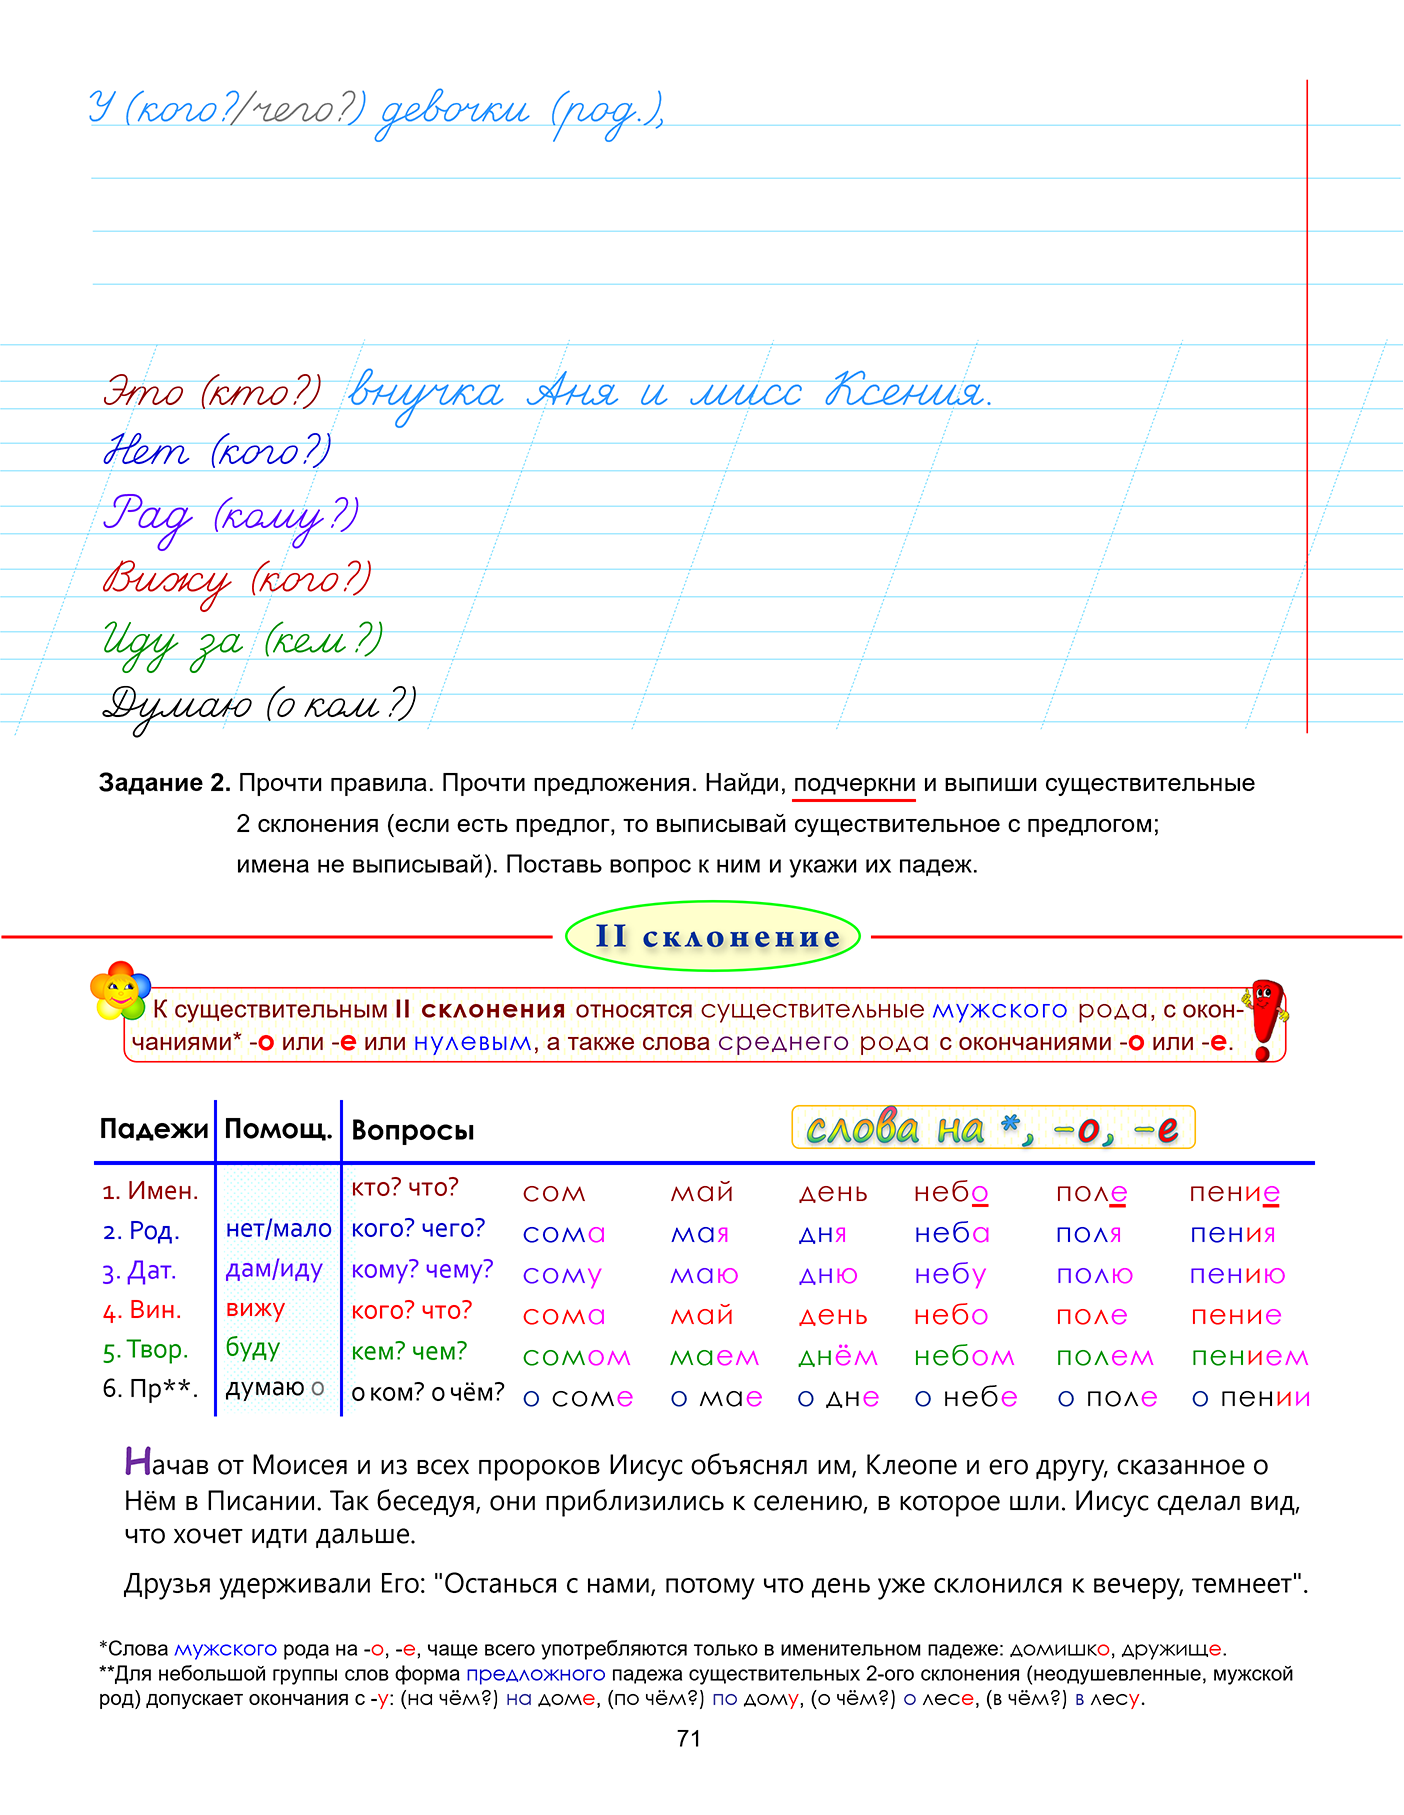 У (кого?/чего?) девочки (род.),
Это (кто?) внучка Аня и мисс Ксения.
Нет (кого?)
Рад (кому?)
Вижу (кого?)
Иду за (кем?)
Думаю (о ком?)
Задание 2. Прочти правила. Прочти предложения. Найди, подчеркни и выпиши существительные
2 склонения (если есть предлог, то выписывай существительное с предлогом;
имена не выписывай). Поставь вопрос к ним и укажи их падеж.
II склонение
К существительным II склонения относятся существительные мужского рода, с окон-
чаниями* -о или -е или нулевым, а также слова среднего рода с окончаниями -о или -е.
Падежи Помощ. Вопросы слова на *, -о, -е
1. Имен. кто? что? сом май день небо поле пение
2. Род. нет/мало кого? чего? сома мая дня неба поля пения
3. Дат. дам/иду кому? чему? сому маю дню небу полю пению
4. Вин. вижу кого? что? сома май день небо поле пение
5. Твор. буду кем? чем? сомом маем днём небом полем пением
6. Пр**. думаю о о ком? о чём? о соме о мае о дне о небе о поле о пении
Начав от Моисея и из всех пророков Иисус объяснял им, Клеопе и его другу, сказанное о
Нём в Писании. Так беседуя, они приблизились к селению, в которое шли. Иисус сделал вид,
что хочет идти дальше.
Друзья удерживали Его: "Останься с нами, потому что день уже склонился к вечеру, темнеет".
*Слова мужского рода на -о, -е, чаще всего употребляются только в именительном падеже: домишко, дружище.
**Для небольшой группы слов форма предложного падежа существительных 2-ого склонения (неодушевленные, мужской
род) допускает окончания с -у: (на чём?) на доме, (по чём?) по дому, (о чём?) о лесе, (в чём?) в лесу.
71